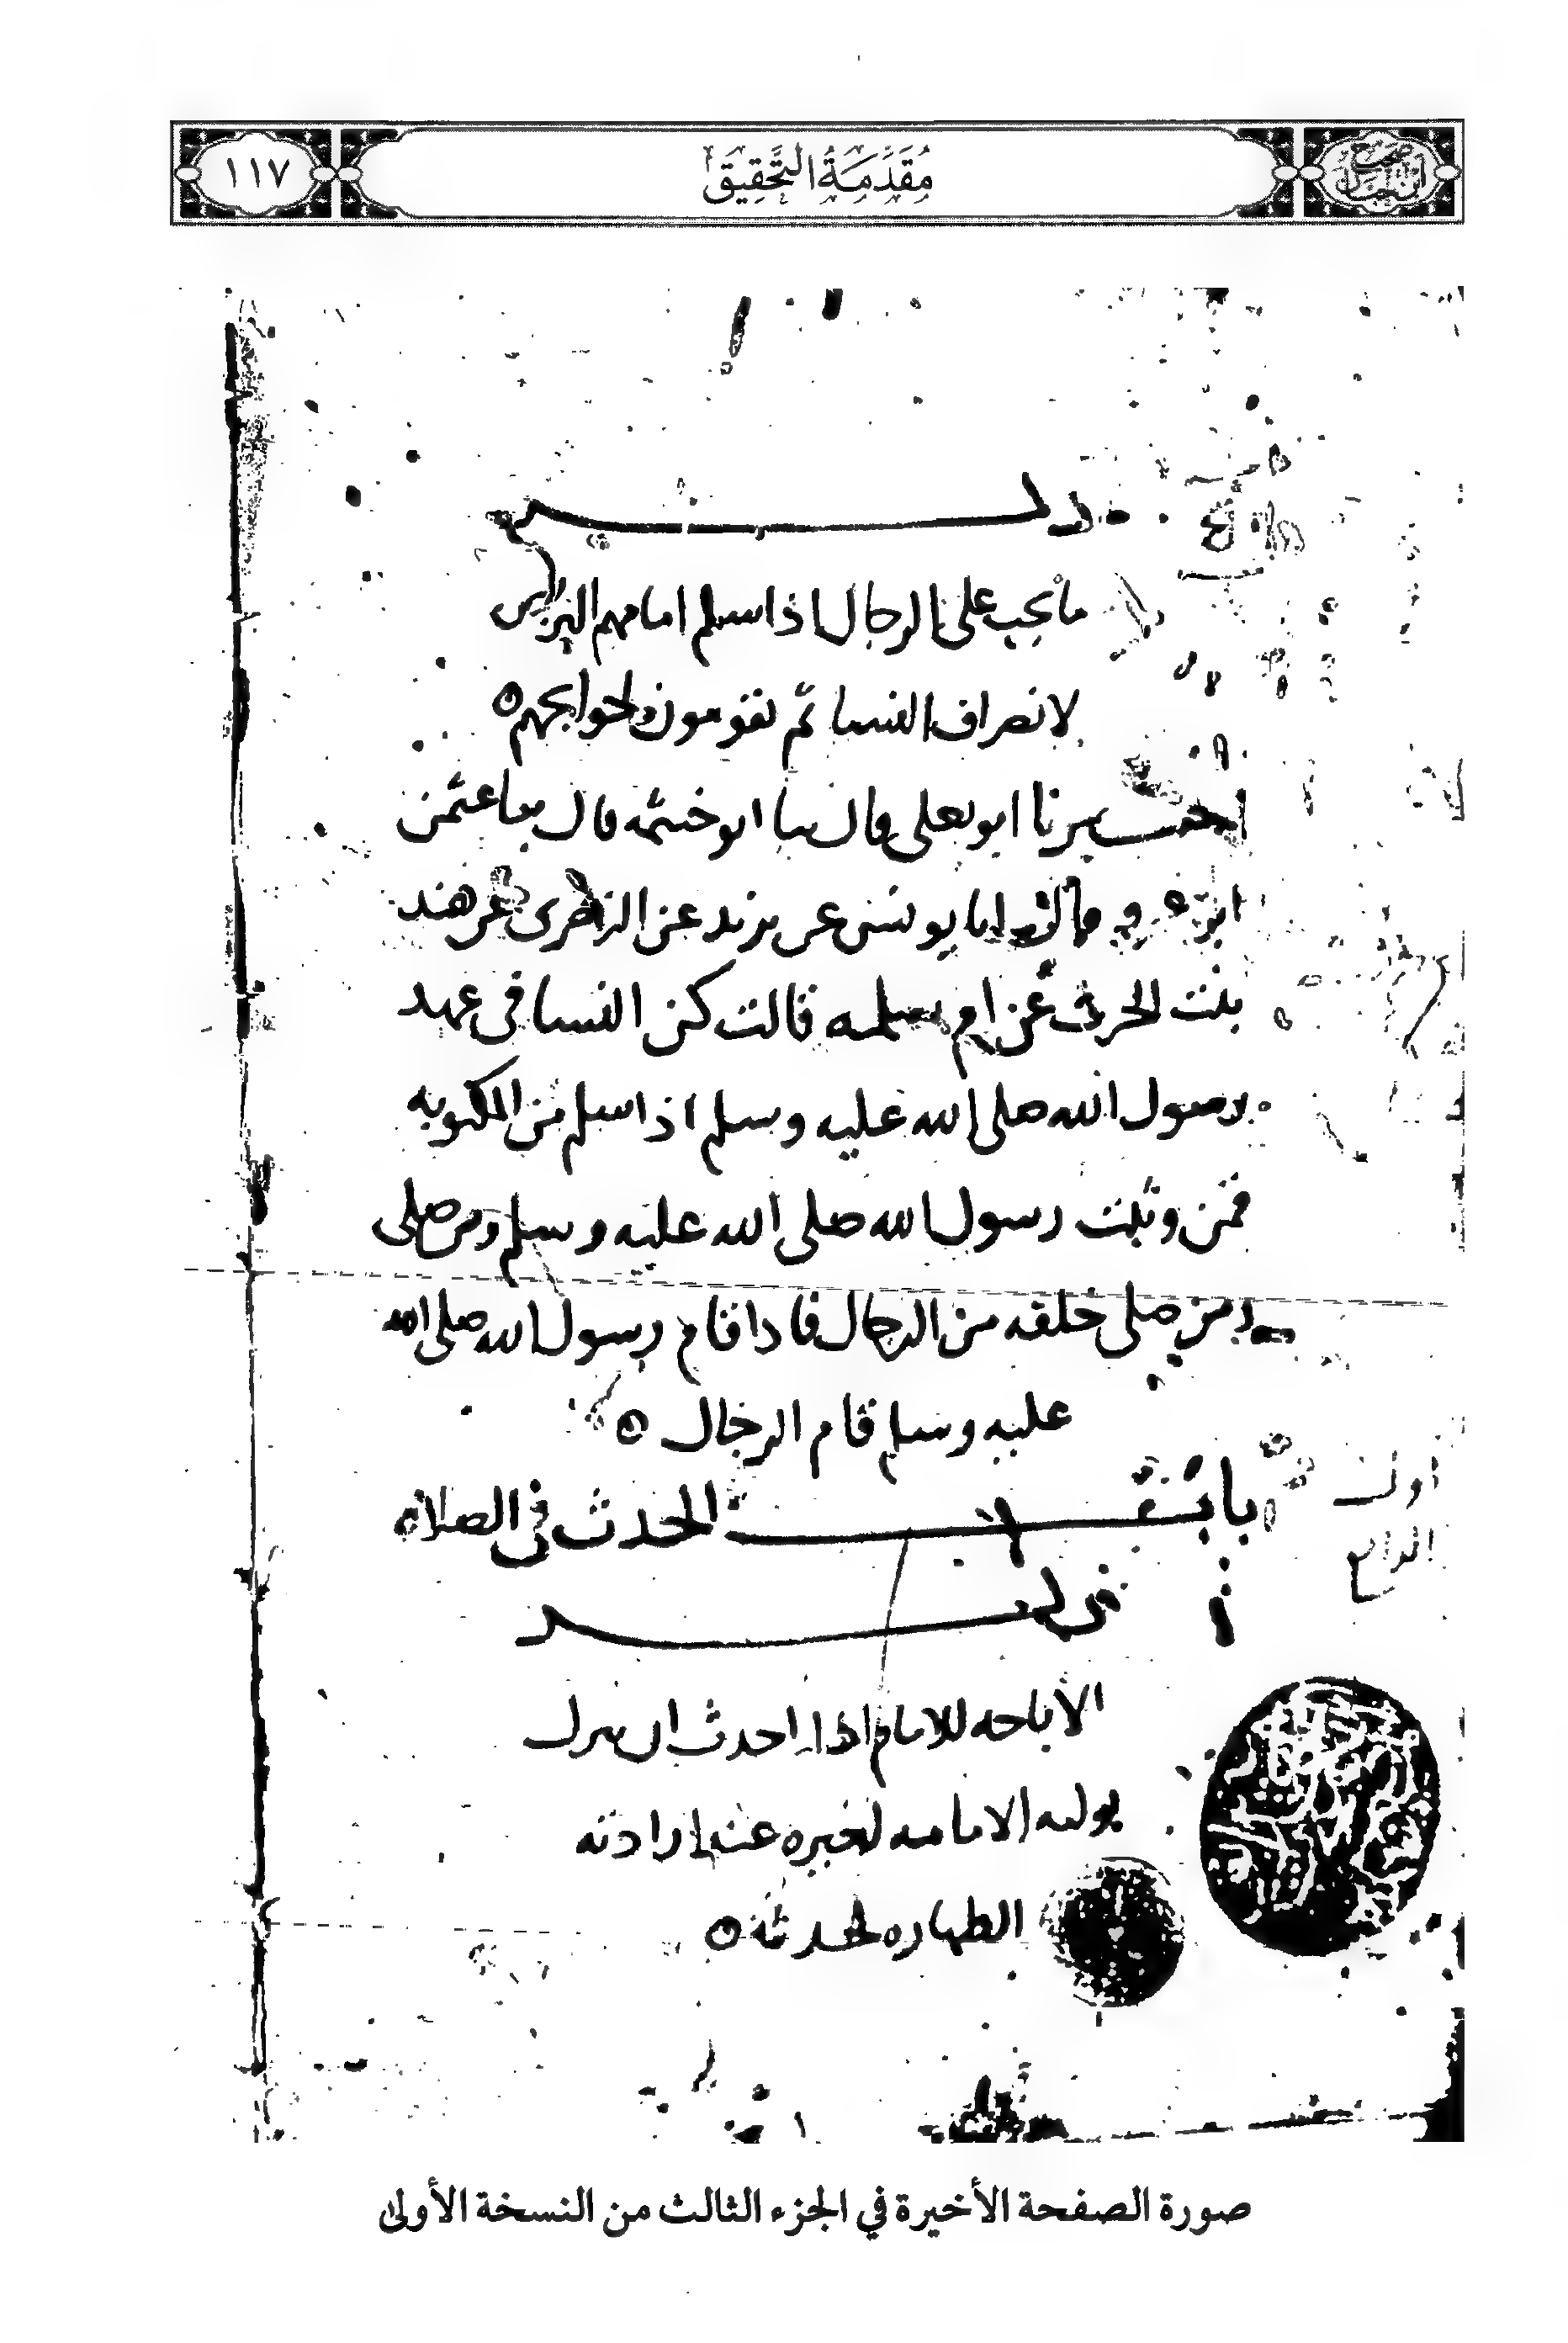 صحيح ابن حبان
مُقَدِّمَةُ التَّحْقِيقِ
١١٧
ذكر
ما يجب على الرجال اذا سلم امامهم التربص
لانصراف النسا ثم يقومون لحوايجهم ه
اخبرنا ابو يعلى قال ثنا ابو خيثمه قال ثنا عثمن
ابن عمر قال انا يونس عن يزيد عن الزهرى عن هند
بنت الحرث عن ام سلمه قالت كن النسا فى عهد
رسول الله صلى الله عليه وسلم اذا سلم من المكتوبه
قمن وثبت رسول الله صلى الله عليه وسلم ومن صلى
ومن صلى خلفه من الرجال فاذا قام رسول الله صلى الله
عليه وسلم قام الرجال ه
باب الحدث فى الصلاه
اول
الرابع
ذكر
الاباحه للامام اذا احدث ان يترك
توليه الامامه لغيره عند ارادته
الطهاره لحدثه ه
صورة الصفحة الأخيرة في الجزء الثالث من النسخة الأولى